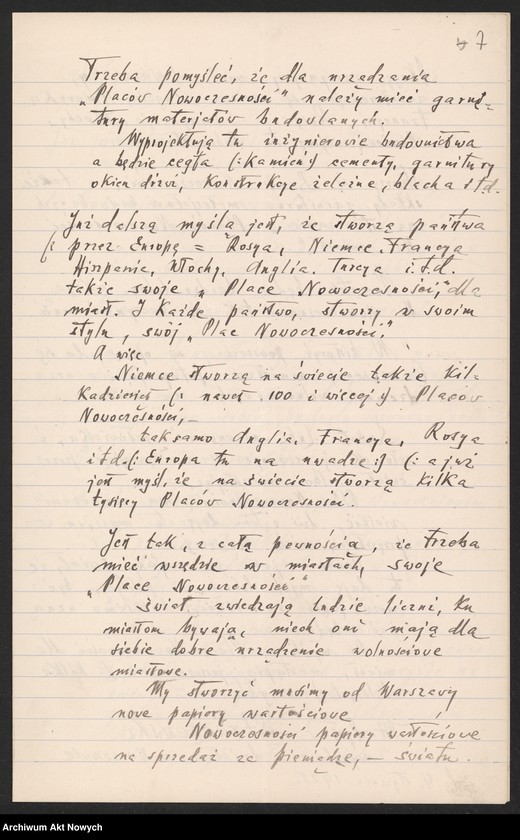 7
Trzeba pomyśleć, że dla urządzania
„Placów Nowoczesności” należy mieć garni-
tury materjałów budowlanych.
Wyprojektują tu inżynierowie budownictwa
a będzie cegła (: kamień :) cementy, garnitury
okien drzwi, konstrukcje żelazne, blacha i t.d.
Już dalszą myślą jest, że stworzą państwa
(: przez Europę = Rosya, Niemce, Francya
Hiszpania, Włochy, Anglia. Turcya i.t.d.
także swoje „Place Nowoczesności,” dla
miast. I każde państwo, stworzy w swoim
stylu, swój „Plac Nowoczesności.”
A więc
Niemce stworzą na świecie także kil-
kadziesiąt (: nawet 100 i więcej :) Placów
Nowoczesności, –
taksamo Anglia, Francya, Rosya
i t d. (: Europa tu na uwadze :) (: a już
jest myśl, że na świecie stworzą kilka
tysięcy Placów Nowoczesności.
Jest tak, z całą pewnością, że trzeba
mieć wszędzie w miastach, swoje
„Place Nowoczesności”
Świat zwiedzają ludzie liczni, ku
miastom bywają, niech oni mają dla
siebie dobre urządzenie wolnościowe
miastowe.
My stworzyć musimy od Warszawy
nowe papiery wartościowe
Nowoczesności papiery wartościowe
na sprzedaż za pieniądze, – światu.
Archiwum Akt Nowych